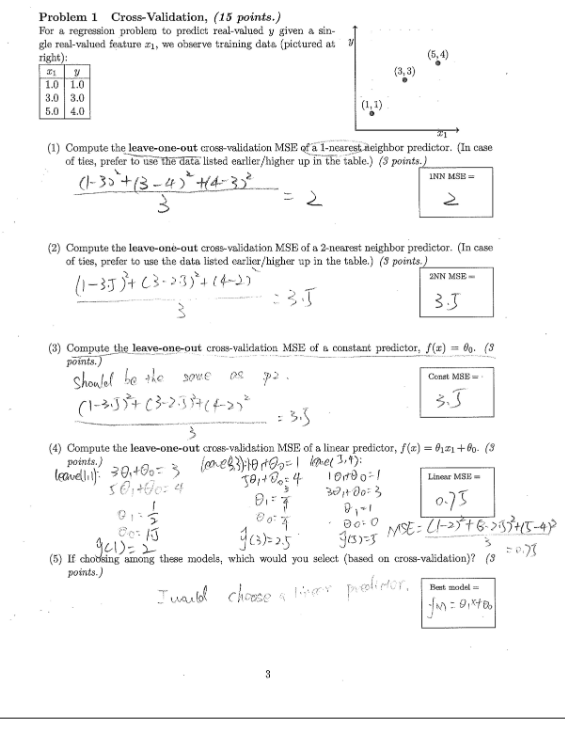 Problem 1 Cross-Validation, (15 points.)
For a regression problem to predict real-valued y given a sin-
gle real-valued feature x₁, we observe training data (pictured at
right):
x₁ y
1.0 1.0
3.0 3.0
5.0 4.0
y
(5,4)
(3,3)
(1,1)
x₁
(1) Compute the leave-one-out cross-validation MSE of a 1-nearest neighbor predictor. (In case
of ties, prefer to use the data listed earlier/higher up in the table.) (3 points.)
(1-3)²+(3-4)²+(4-3)²
3
= 2
1NN MSE =
2
(2) Compute the leave-one-out cross-validation MSE of a 2-nearest neighbor predictor. (In case
of ties, prefer to use the data listed earlier/higher up in the table.) (3 points.)
(1-3.5)²+(3-2.5)²+(4-2)²
3
= 3.5
2NN MSE =
3.5
(3) Compute the leave-one-out cross-validation MSE of a constant predictor, f(x) = θ₀. (3
points.)
Should be the same as p2.
(1-3.5)²+(3-2.5)²+(4-2)²
3
= 3.5
Const MSE =
3.5
(4) Compute the leave-one-out cross-validation MSE of a linear predictor, f(x) = θ₁x₁ + θ₀. (3
points.)
leave(1,1): 3θ₁+θ₀= 3
5θ₁+θ₀= 4
θ₁ = 1/2
θ₀= 1.5
ŷ(1)= 2
leave(3,3): 1θ₁+θ₀=1
5θ₁+θ₀=4
θ₁ = 3/4
ŷ(3)=2.5
1θ₁+θ₀=1
3θ₁+θ₀=3
θ₁=1
θ₀=0
ŷ(5)=5
MSE = (1-2)²+(3-2.5)²+(5-4)²
3
=0.75
Linear MSE =
0.75
(5) If choosing among these models, which would you select (based on cross-validation)? (3
points.)
I would choose a linear predictor.
Best model =
f(x) = θ₁x+θ₀
3